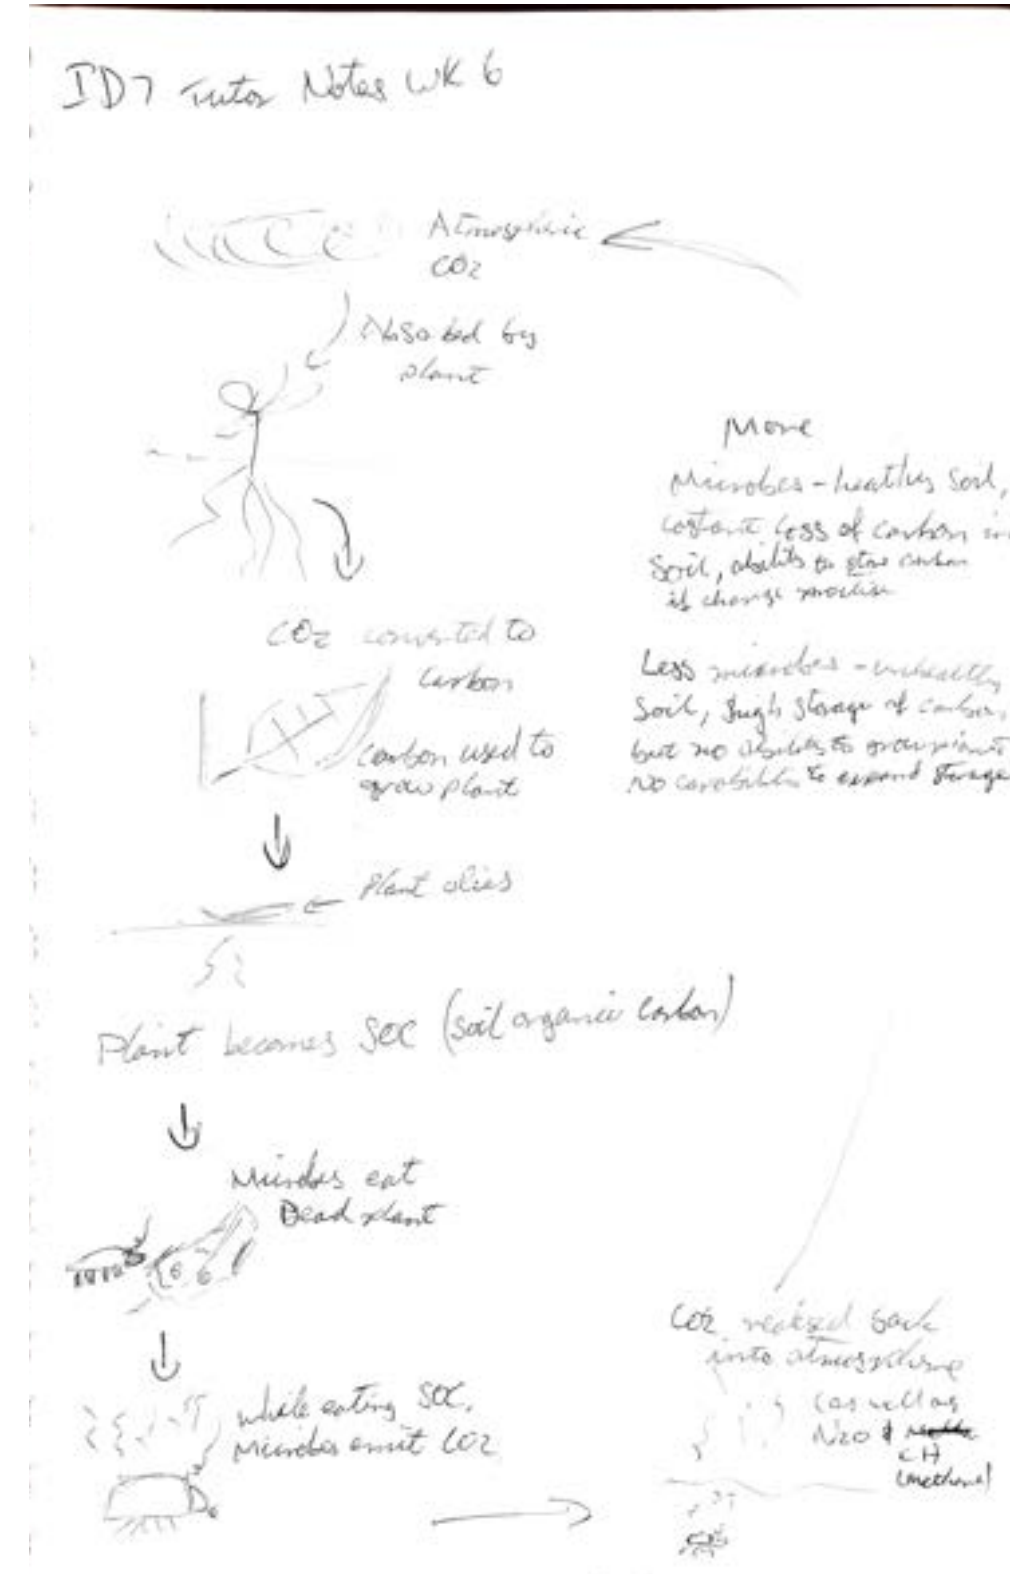 ID7 Tutor Notes WK 6
Atmospheric
CO2
Absorbed by
plant
CO2 converted to
Carbon
Carbon used to
grow plant
Plant dies
Plant becomes SOC (soil organic carbon)
Microbes eat
Dead plant
while eating SOC,
Microbes emit CO2
More
Microbes - healthy soil,
constant loss of carbon in
soil, ability to store carbon
if change
Less microbes - unhealthy
soil, high storage of carbon,
but no ability to grow plants
no capability to expand storage
CO2 released back
into atmosphere
(as well as
N2O &
CH
(methane)